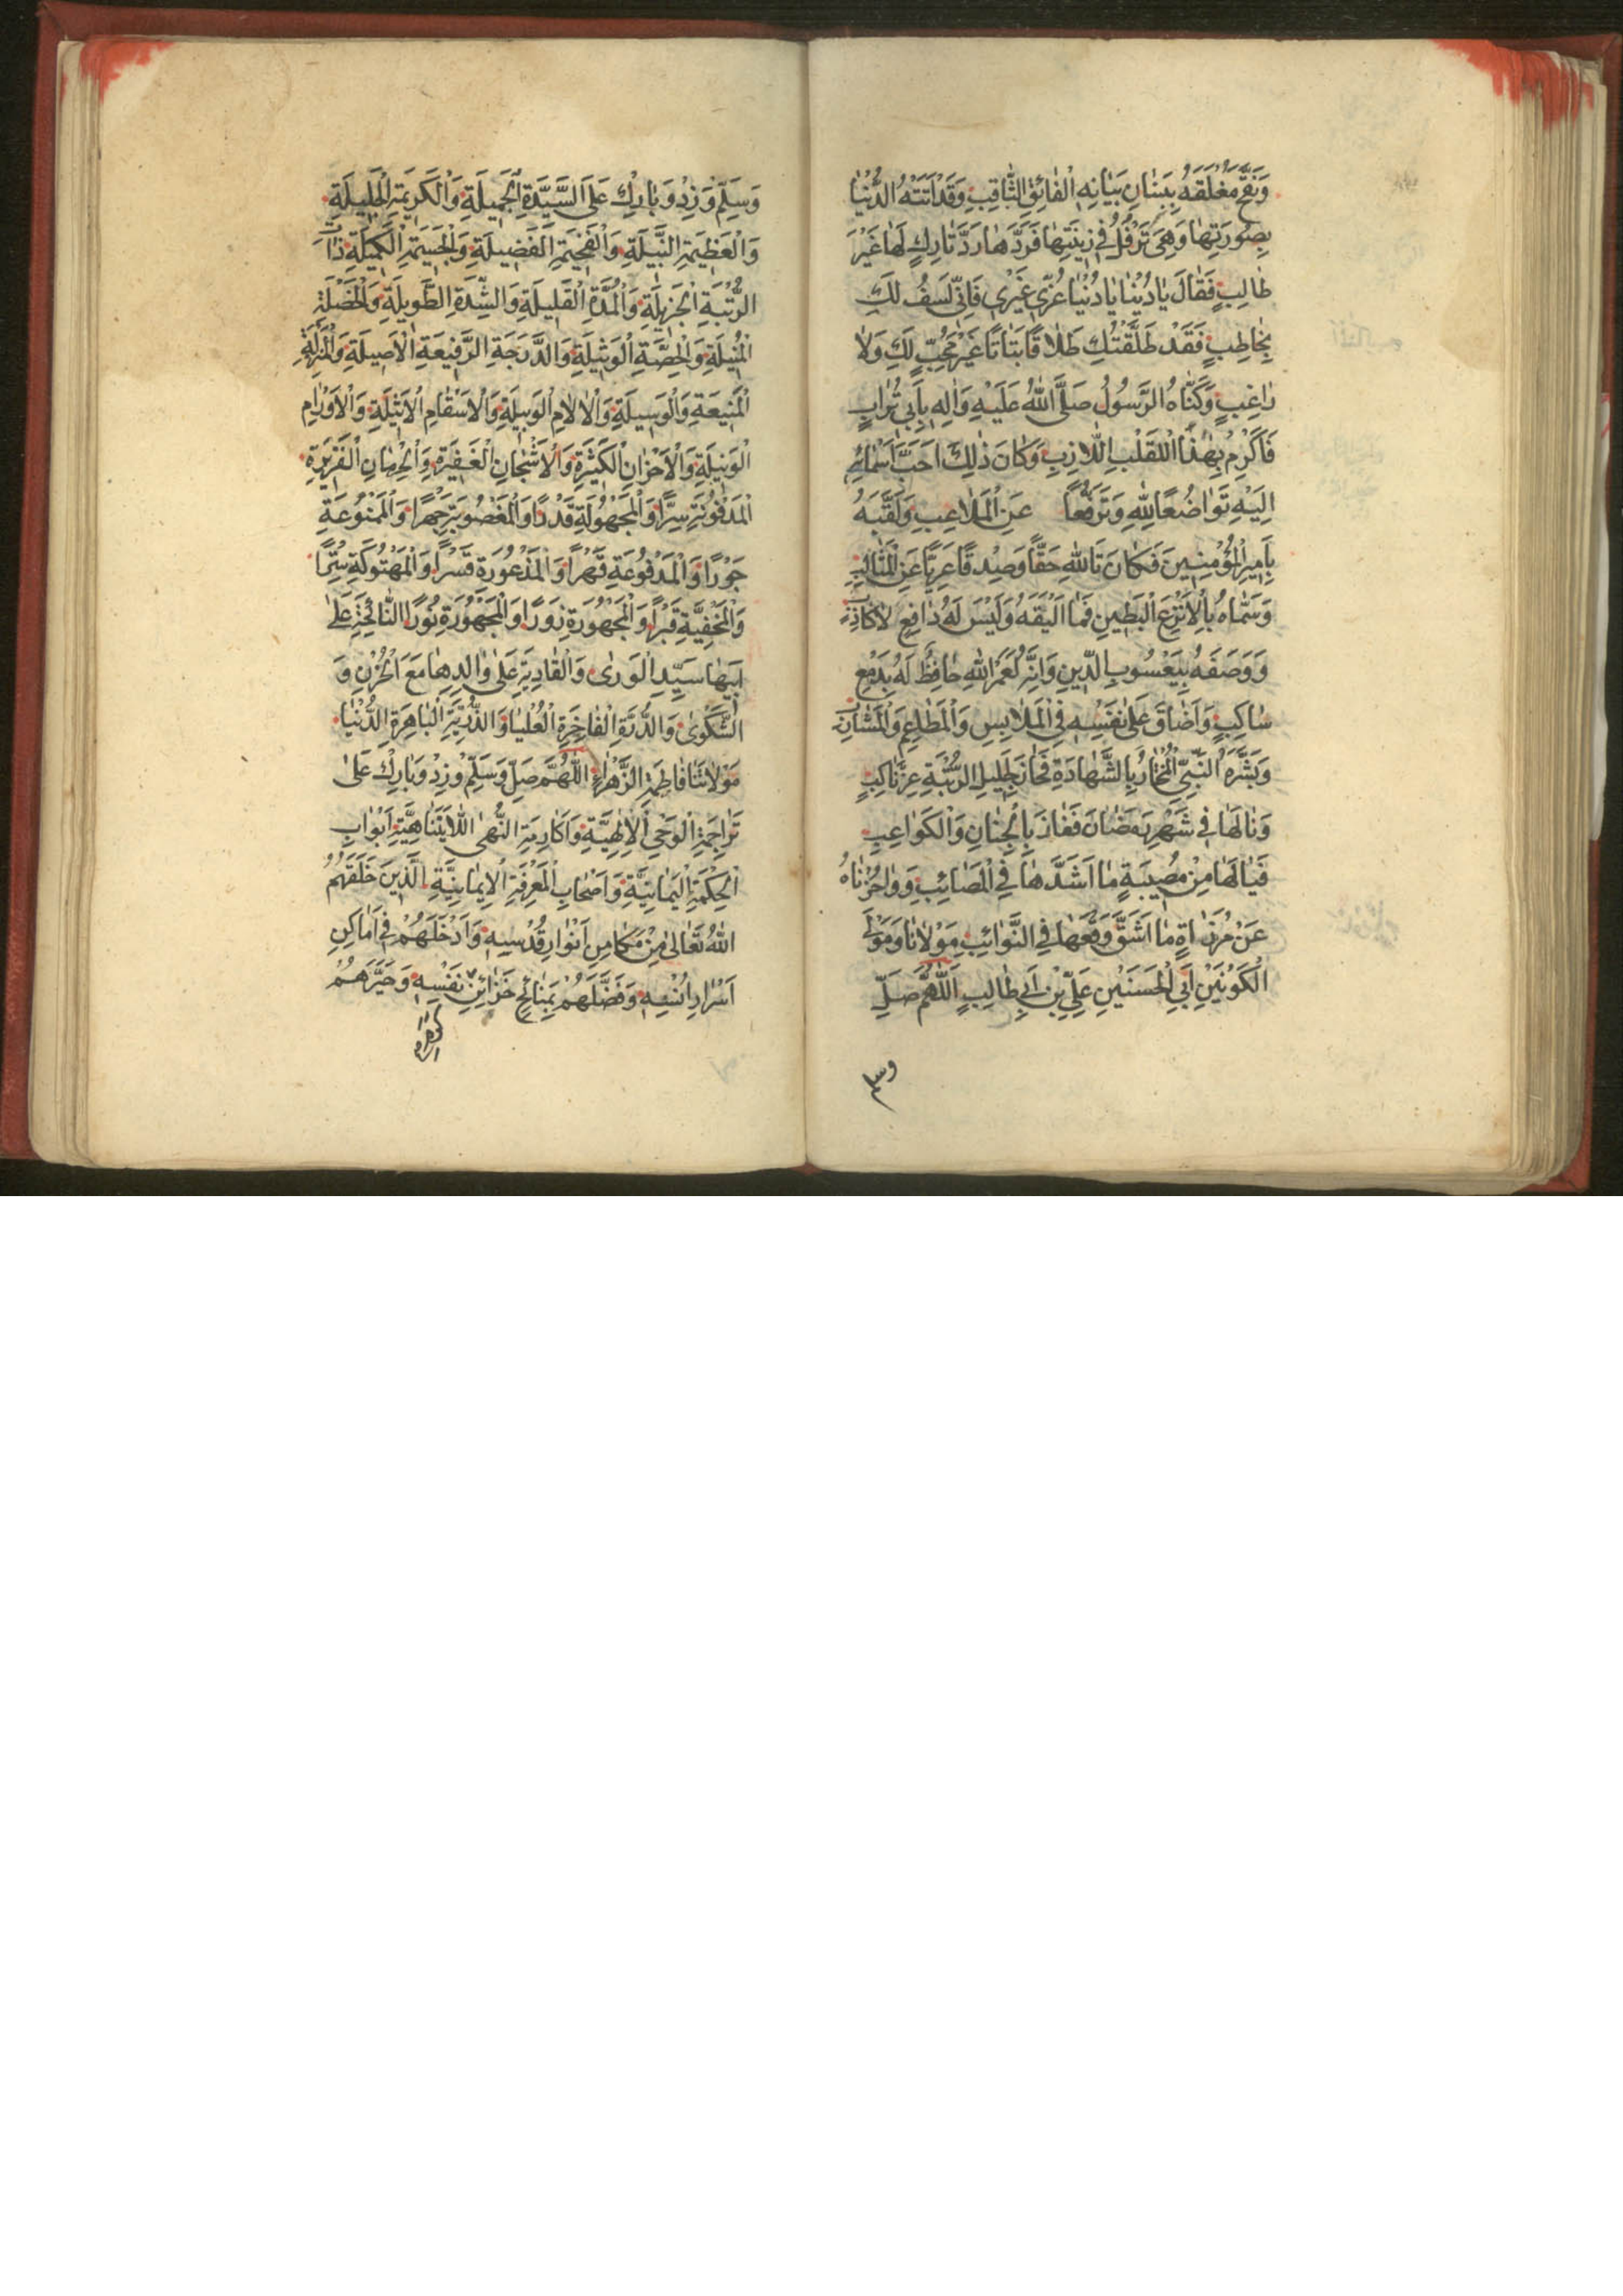 وَفَتَحَ مُغْلَقَهُ بِبَنَانِ بَيَانِهِ الْفَائِقِ الثَّاقِبِ وَقَدْ اَتَتْهُ الدُّنْيَا
بِصُورَتِهَا وَهِيَ تَرْفُلُ فِي زِينَتِهَا فَرَدَّهَا رَدَّ تَارِكٍ لَهَا غَيْرَ
طَالِبٍ فَقَالَ يَا دُنْيَا يَا دُنْيَا غُرِّي غَيْرِي فَاِنِّي لَسْتُ لَكِ
بِخَاطِبٍ فَقَدْ طَلَّقْتُكِ طَلَاقًا بَتَاتًا غَيْرَ مُحِبٍّ لَكِ وَلَا
رَاغِبٍ وَكَنَّاهُ الرَّسُولُ صَلَّى اللهُ عَلَيْهِ وَاٰلِهِ بِاَبِي تُرَابٍ
فَاَكْرِمْ بِهٰذَا اللَّقَبِ اللَّازِبِ وَكَانَ ذٰلِكَ اَحَبَّ اَسْمَائِهِ
اِلَيْهِ تَوَاضُعًا لِلّٰهِ وَتَرَفُّعًا عَنِ الْمَلَاعِبِ وَلَقَّبَهُ
بِاَمِيرِ الْمُؤْمِنِينَ فَكَانَ تَاللهِ حَقًّا وَصِدْقًا عَرِيًّا عَنِ الْمَثَالِبِ
وَسَمَّاهُ بِالْاَنْزَعِ الْبَطِينِ فَمَا اَلْيَقَهُ وَلَيْسَ لَهُ دَافِعٌ لَا كَاذِبٌ
وَوَصَفَهُ بِيَعْسُوبِ الدِّينِ وَاِنَّهُ لَعَمْرُ اللهِ حَافِظٌ لَهُ بِدَمْعٍ
سَاكِبٍ وَاَضَاقَ عَلٰى نَفْسِهِ فِي الْمَلَابِسِ وَالْمَطَاعِمِ وَالْمَشَارِبِ
وَبَشَّرَهُ النَّبِيُّ الْمُخْتَارُ بِالشَّهَادَةِ فَحَازَ جَلِيلَ الرُّتْبَةِ
وَنَالَهَا فِي شَهْرِ رَمَضَانَ فَفَازَ بِالْجِنَانِ وَالْكَوَاعِبِ
فَيَا لَهَا مِنْ مُصِيبَةٍ مَا اَشَدَّهَا فِي الْمَصَائِبِ وَوَاحُزْنَاهُ
عَنْ مُرْزَاةٍ مَا اَشَقَّ وَقْعَهَا فِي النَّوَائِبِ مَوْلَانَا وَمَوْلَى
الْكَوْنَيْنِ اَبِي الْحَسَنَيْنِ عَلِيِّ بْنِ اَبِي طَالِبٍ اَللّٰهُمَّ صَلِّ
وسلم
وَسَلِّمْ وَزِدْ وَبَارِكْ عَلَى السَّيِّدَةِ الْجَمِيلَةِ وَالْكَرِيمَةِ الْجَلِيلَةِ
وَالْعَظِيمَةِ النَّبِيلَةِ وَالْفَخِيمَةِ الْفَضِيلَةِ وَالْكَمِيلَةِ ذَاتِ
الرُّتْبَةِ الْجَزِيلَةِ وَالْمُدَّةِ الْقَلِيلَةِ وَالشِّدَّةِ الطَّوِيلَةِ وَالْخَصْلَةِ
الْمُنِيلَةِ وَالْحِصَّةِ الْوَثِيلَةِ وَالدَّرَجَةِ الرَّفِيعَةِ الْاَصِيلَةِ وَالْمَنْزِلَةِ
الْمَنِيعَةِ وَالْوَسِيلَةِ وَالْاٰلَامِ الْوَبِيلَةِ وَالْاَسْقَامِ الْاَثِيلَةِ وَالْاَوْرَامِ
الْوَبِيلَةِ وَالْاَحْزَانِ الْكَثِيرَةِ وَالْاَشْجَانِ الْغَفِيرَةِ
الْمَدْفُونَةِ سِرًّا وَالْمَجْهُولَةِ قَدْرًا وَالْمَغْصُوبَةِ جَهْرًا وَالْمَمْنُوعَةِ
جَوْرًا وَالْمَدْفُوعَةِ قَهْرًا وَالْمَذْعُورَةِ قَسْرًا وَالْمَهْتُوكَةِ سِتْرًا
وَالْمَخْفِيَّةِ قَبْرًا وَالْمَجْهُورَةِ زَوْرًا وَالْمَجْهُورَةِ نُورًا النَّائِحَةِ عَلٰى
اَبِيهَا سَيِّدِ الْوَرٰى وَالنَّادِبَةِ عَلٰى وَالِدِهَا مَعَ الْحُزْنِ وَ
الشَّكْوٰى وَالدُّرَّةِ الْفَاخِرَةِ الْعُلْيَا وَالذُّرِّيَّةِ الْبَاهِرَةِ الدُّنْيَا
مَوْلَاتِنَا فَاطِمَةَ الزَّهْرَاءِ اَللّٰهُمَّ صَلِّ وَسَلِّمْ وَزِدْ وَبَارِكْ عَلٰى
تَرَاجِمَةِ الْوَحْيِ الْاِلٰهِيَّةِ وَاَكَارِمَةِ النُّهٰى اللَّايَتَنَاهِيَّةِ اَبْوَابِ
الْحِكْمَةِ الْيَمَانِيَّةِ وَاَصْحَابِ الْمَعْرِفَةِ الْاِيمَانِيَّةِ الَّذِينَ خَلَقَهُمُ
اللهُ تَعَالٰى مِنْ مَكَامِنِ اَنْوَارِ قُدْسِهِ وَاَدْخَلَهُمْ فِي اَمَاكِنِ
اَسْرَارِ اُنْسِهِ وَفَضَّلَهُمْ بِمَنَائِحِ خَزَائِنِ نَفْسِهِ وَخَيَّرَهُمْ